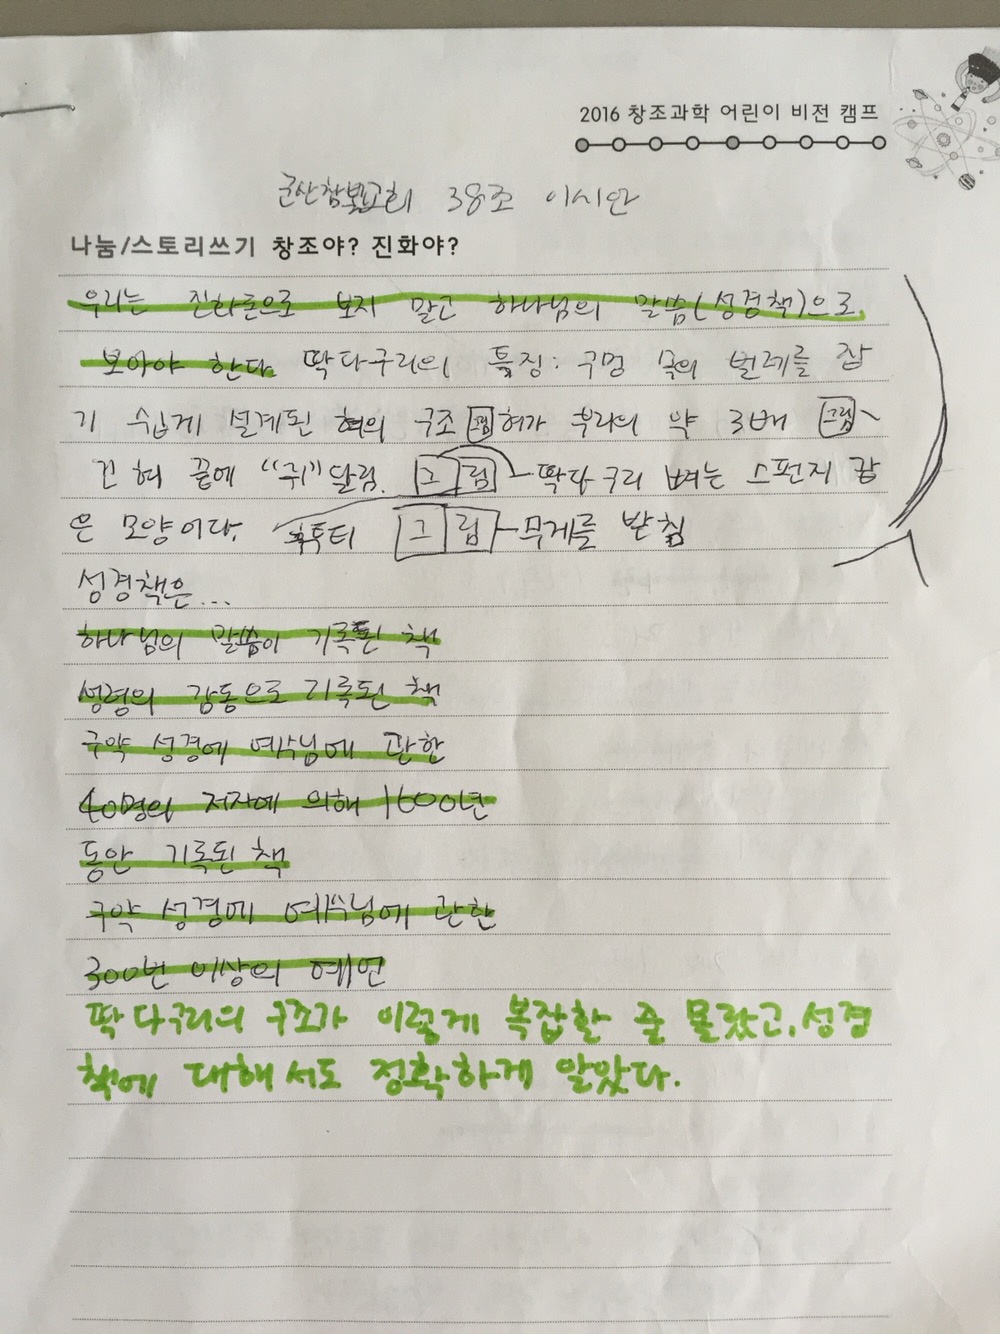 2016 창조과학 어린이 비전 캠프
군산참빛교회 38조 이시안
나눔/스토리쓰기 창조야? 진화야?
우리는 진화론으로 보지 말고 하나님의 말씀(성경책)으로
보아야 한다. 딱다구리의 특징: 구멍 속의 벌레를 잡
기 쉽게 설계된 혀의 구조 그림 혀가 부리의 약 3배 그림
긴 혀 끝에 "귀"달림. 그림 딱다구리 뼈는 스펀지 같
은 모양이다. 후투티 그림 무게를 받침
성경책은...
하나님의 말씀이 기록된 책
성령의 감동으로 기록된 책
구약 성경에 예수님에 관한
40명의 저자에 의해 1600년
동안 기록된 책
구약 성경에 예수님에 관한
300번 이상의 예언
딱다구리의 구조가 이렇게 복잡할 줄 몰랐고, 성경
책에 대해서도 정확하게 알았다.